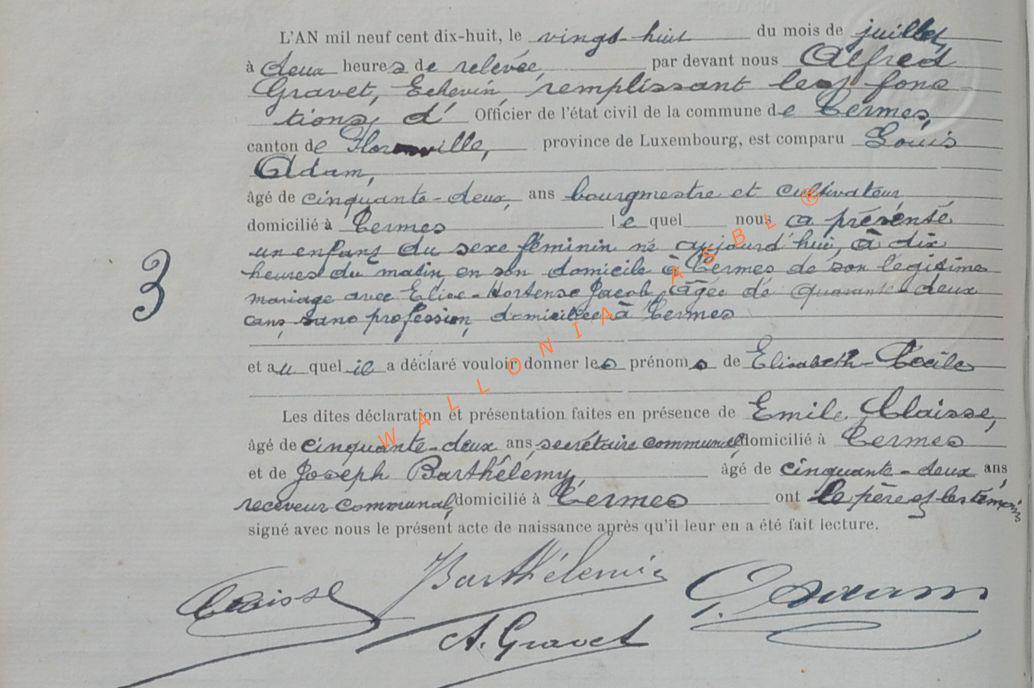 L'AN mil neuf cent dix-huit, le vingt-huit du mois de juillet,
à deux heures de relevée, par devant nous Alfred
Gravet, Echevin, remplissant les fonc
tions, d' Officier de l'état civil de la commune de Termes,
canton de Florenville, province de Luxembourg, est comparu Louis
Adam,
âgé de cinquante-deux, ans bourgmestre et cultivateur
domicilié à Termes lequel nous a présenté
un enfant du sexe féminin né aujourd'hui, à dix
heures du matin en son domicile à Termes de son légitime
3
mariage avec Elise-Hortense Jacob, âgée de quarante-deux
ans, sans profession, domiciliée à Termes
et au quel il a déclaré vouloir donner les prénoms de Elisabeth-Cécile
Les dites déclaration et présentation faites en présence de Emile Claisse,
âgé de cinquante-deux ans, secrétaire communal, domicilié à Termes
et de Joseph Barthélemy, âgé de cinquante-deux ans
receveur communal, domicilié à Termes ont le père et les témoins
signé avec nous le présent acte de naissance après qu'il leur en a été fait lecture.
Claisse Barthélemie Adam
A. Gravet
WALLONIA ASBL ©